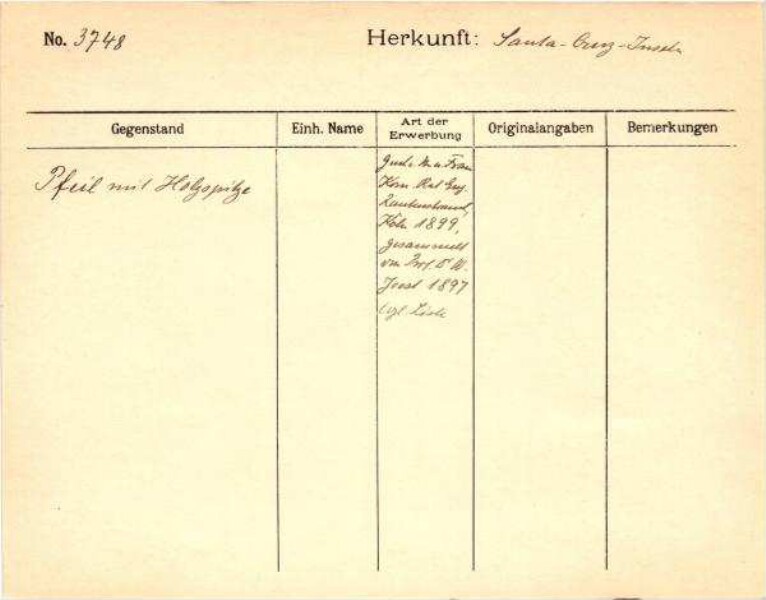 No. 3748 Herkunft: Santa-Cruz-Inseln
Gegenstand Einh. Name Art der Erwerbung Originalangaben Bemerkungen
Pfeil mit Holzspitze
Frau
Kom. Rat Eug.
Rautenstrauch,
Köln 1899,
gesammelt
von Prof. Dr W.
Joest 1897
vgl. Liste